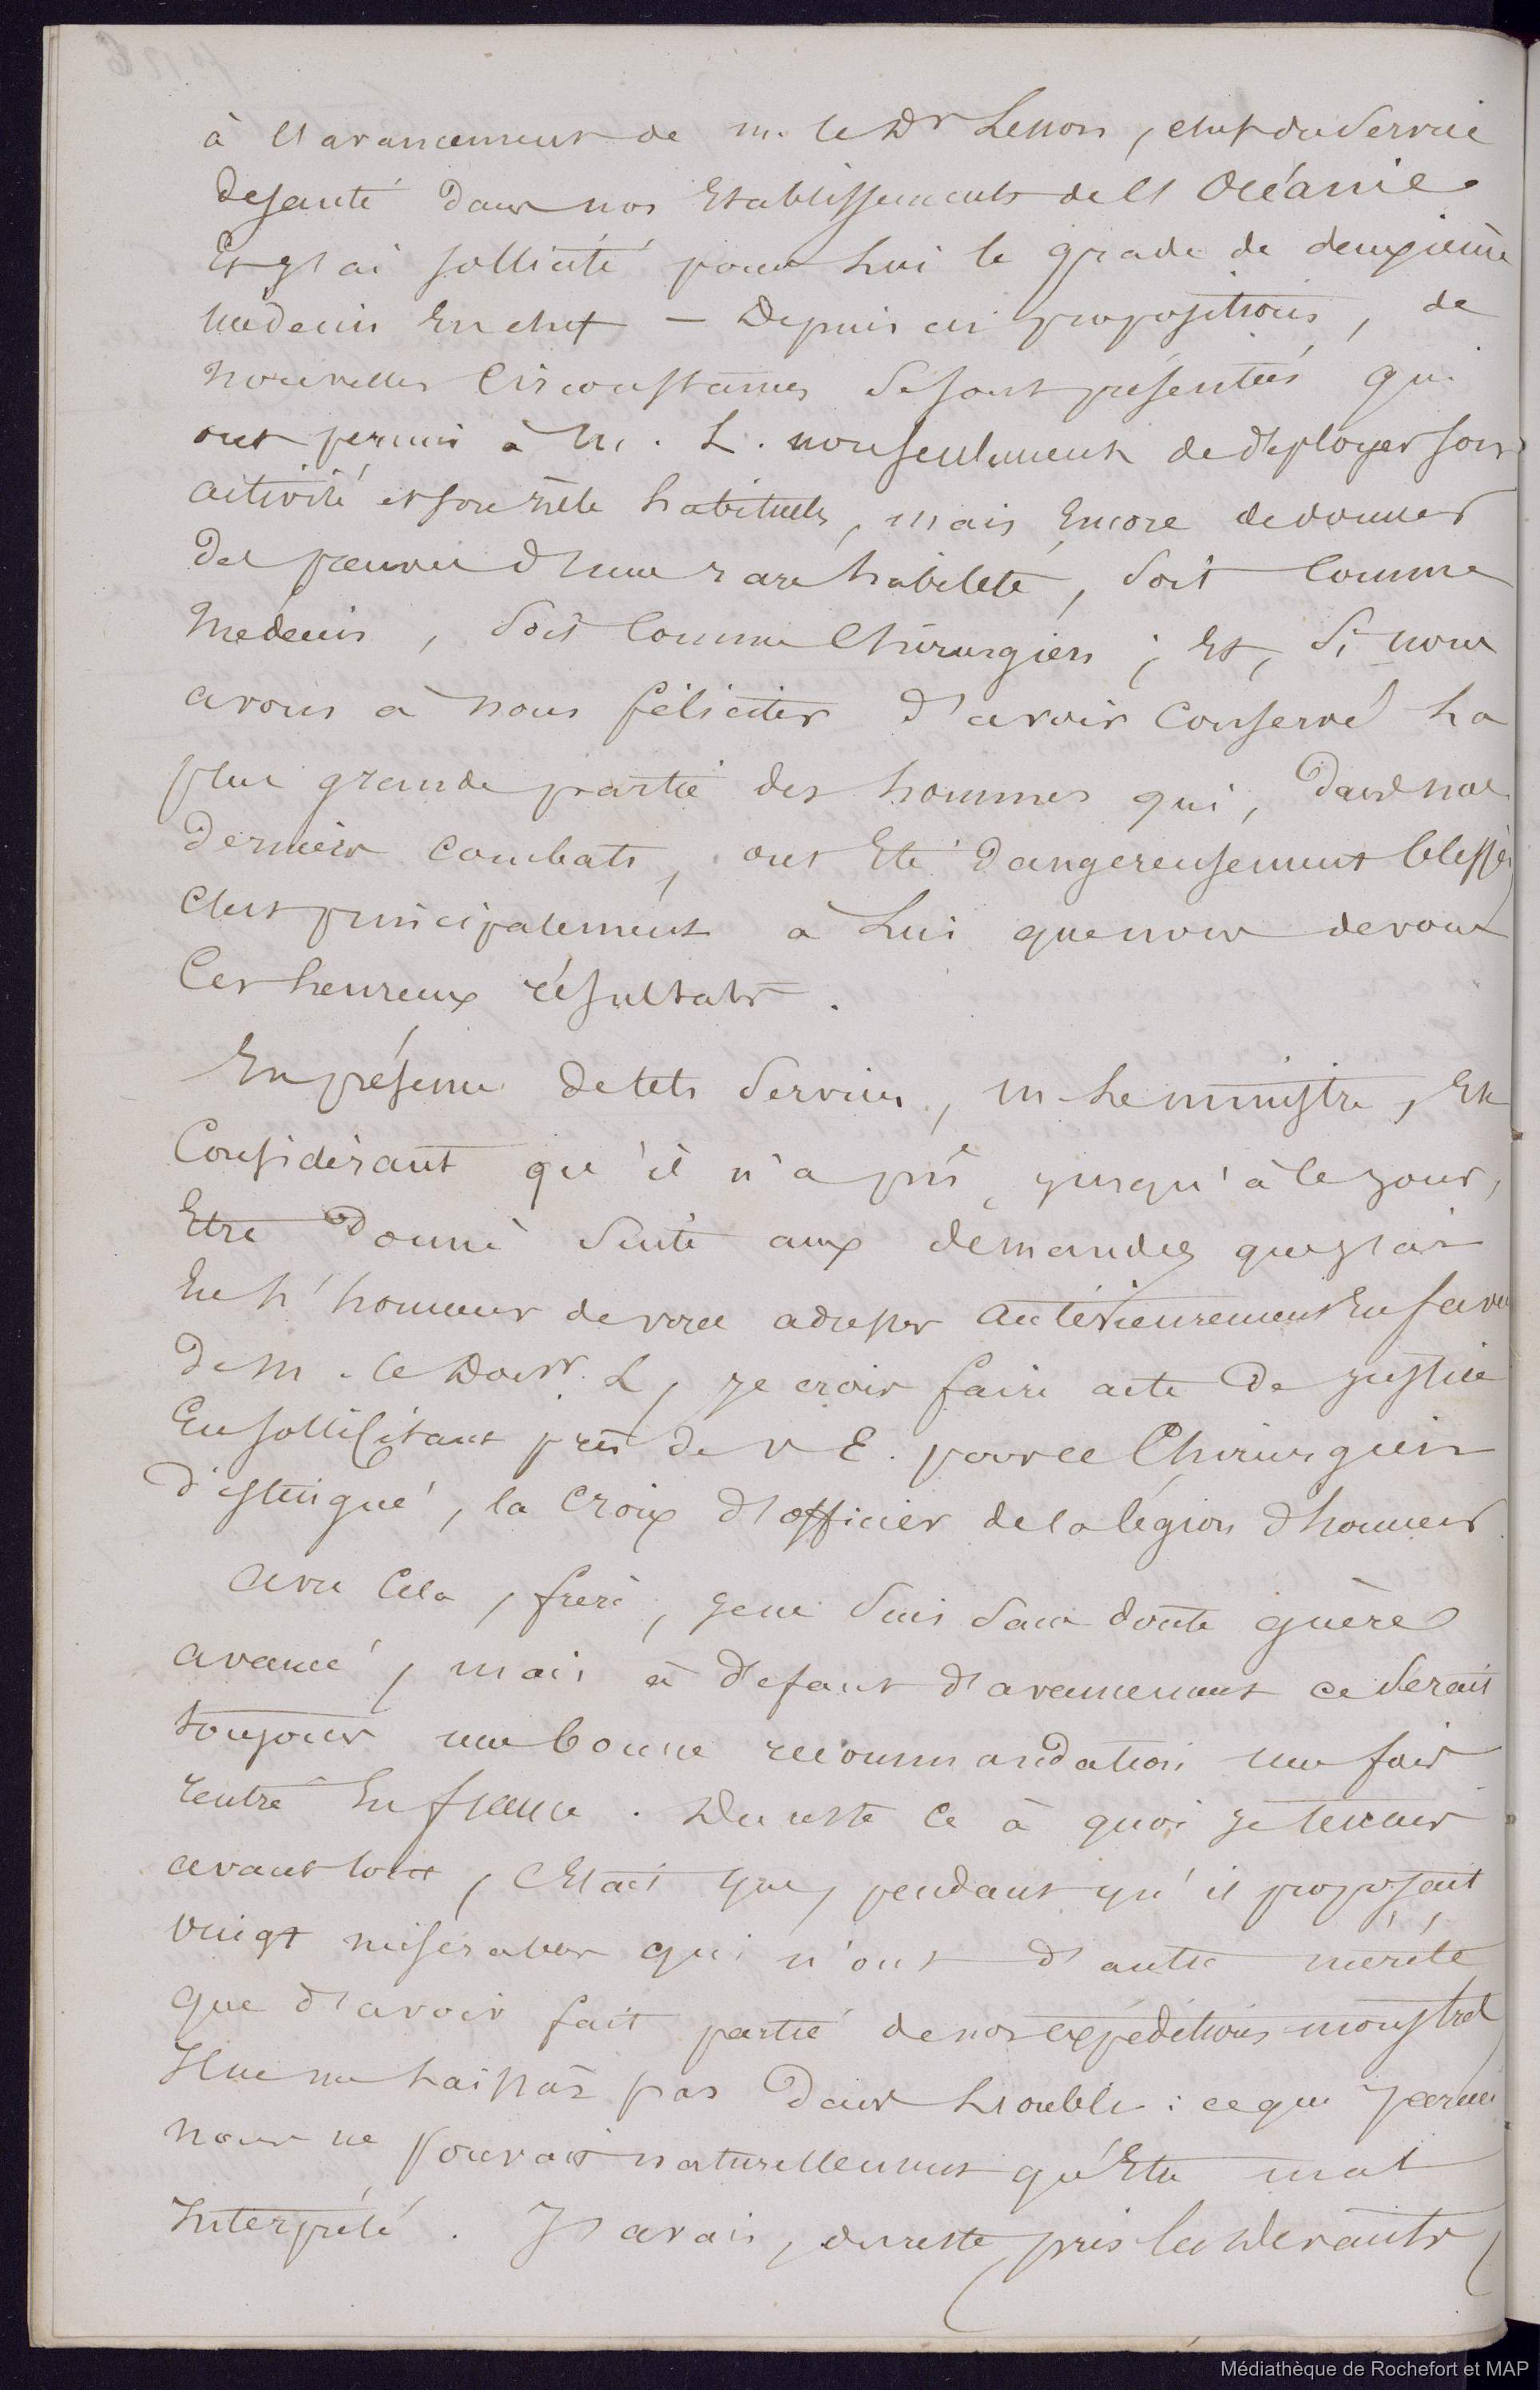 à l'avancement de m. le Dr Lesson, chef du Service
de santé dans nos Etablissements de l'Océanie
Et j'ai sollicité pour Lui le grade de deuxième
médecin En chef – Depuis ces propositions, de
nouvelles Circonstances se sont présentées qui
ont permis à M. L. non seulement de déployer son
activité et son zèle habituels, mais Encore de donner
des preuves d'une rare habileté, soit Comme
Médecin, soit Comme Chirurgien ; Et, Si nous
avons à nous féliciter d'avoir Conservé La
plus grande partie des hommes qui, dans nos
derniers Combats, ont Eté dangereusement blessés
C'est principalement à Lui que nous devons
Ces heureux résultats.
En présence de tels Services, M. Le ministre, En
Considérant qu'il n'a pû, jusqu'à Ce jour,
Etre donné suite aux demandes que j'ai
Eu L'honneur de vous adresser antérieurement En faveur
de M. le Doctr. L, je crois faire acte de justice
En sollicitant près de V E. pour ce Chirurgien
distingué, la Croix d'officier de la légion d'honneur.
avec Cela, frère, je ne suis sans doute guères
avancé, mais à défaut d'avancement ce Serait
toujours une bonne recommandation une fois
rentré En france. Du reste Ce à quoi je tenais
avant tout, C'Etait que, pendant qu'il proposait
vingt misérables qui n'ont d'autre mérite
que d'avoir fait partie de nos expéditions monstres
Il ne me Laissàt pas dans L'oubli : ce qui parmi
nous ne pouvait naturellement qu'Etre mal
Interprété. J'avais, du reste, pris les Devants,
Médiathèque de Rochefort et MAP